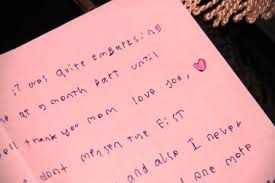 iT was quite embaresing
at 9 month part until
well thank you mom love you,
dont mensen the FIST
and also I never
one more